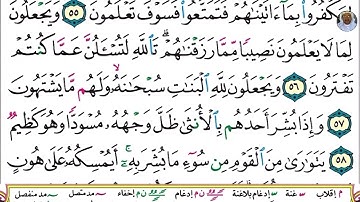 لِيَكْفُرُوا۟ بِمَآ ءَاتَيْنَٰهُمْ فَتَمَتَّعُوا۟ فَسَوْفَ تَعْلَمُونَ ٥٥ وَيَجْعَلُونَ
لِمَا لَا يَعْلَمُونَ نَصِيبًا مِّمَّا رَزَقْنَٰهُمْ ۗ تَٱللَّهِ لَتُسْـَٔلُنَّ عَمَّا كُنتُمْ
تَفْتَرُونَ ٥٦ وَيَجْعَلُونَ لِلَّهِ ٱلْبَنَٰتِ سُبْحَٰنَهُۥ وَلَهُم مَّا يَشْتَهُونَ
٥٧ وَإِذَا بُشِّرَ أَحَدُهُم بِٱلْأُنثَىٰ ظَلَّ وَجْهُهُۥ مُسْوَدًّا وَهُوَ كَظِيمٌ
٥٨ يَتَوَٰرَىٰ مِنَ ٱلْقَوْمِ مِن سُوٓءِ مَا بُشِّرَ بِهِۦٓ ۚ أَيُمْسِكُهُۥ عَلَىٰ هُونٍ
م إقلاب غنة إدغام بلاغنة إدغام إخفاء مد متصل مد منفصل